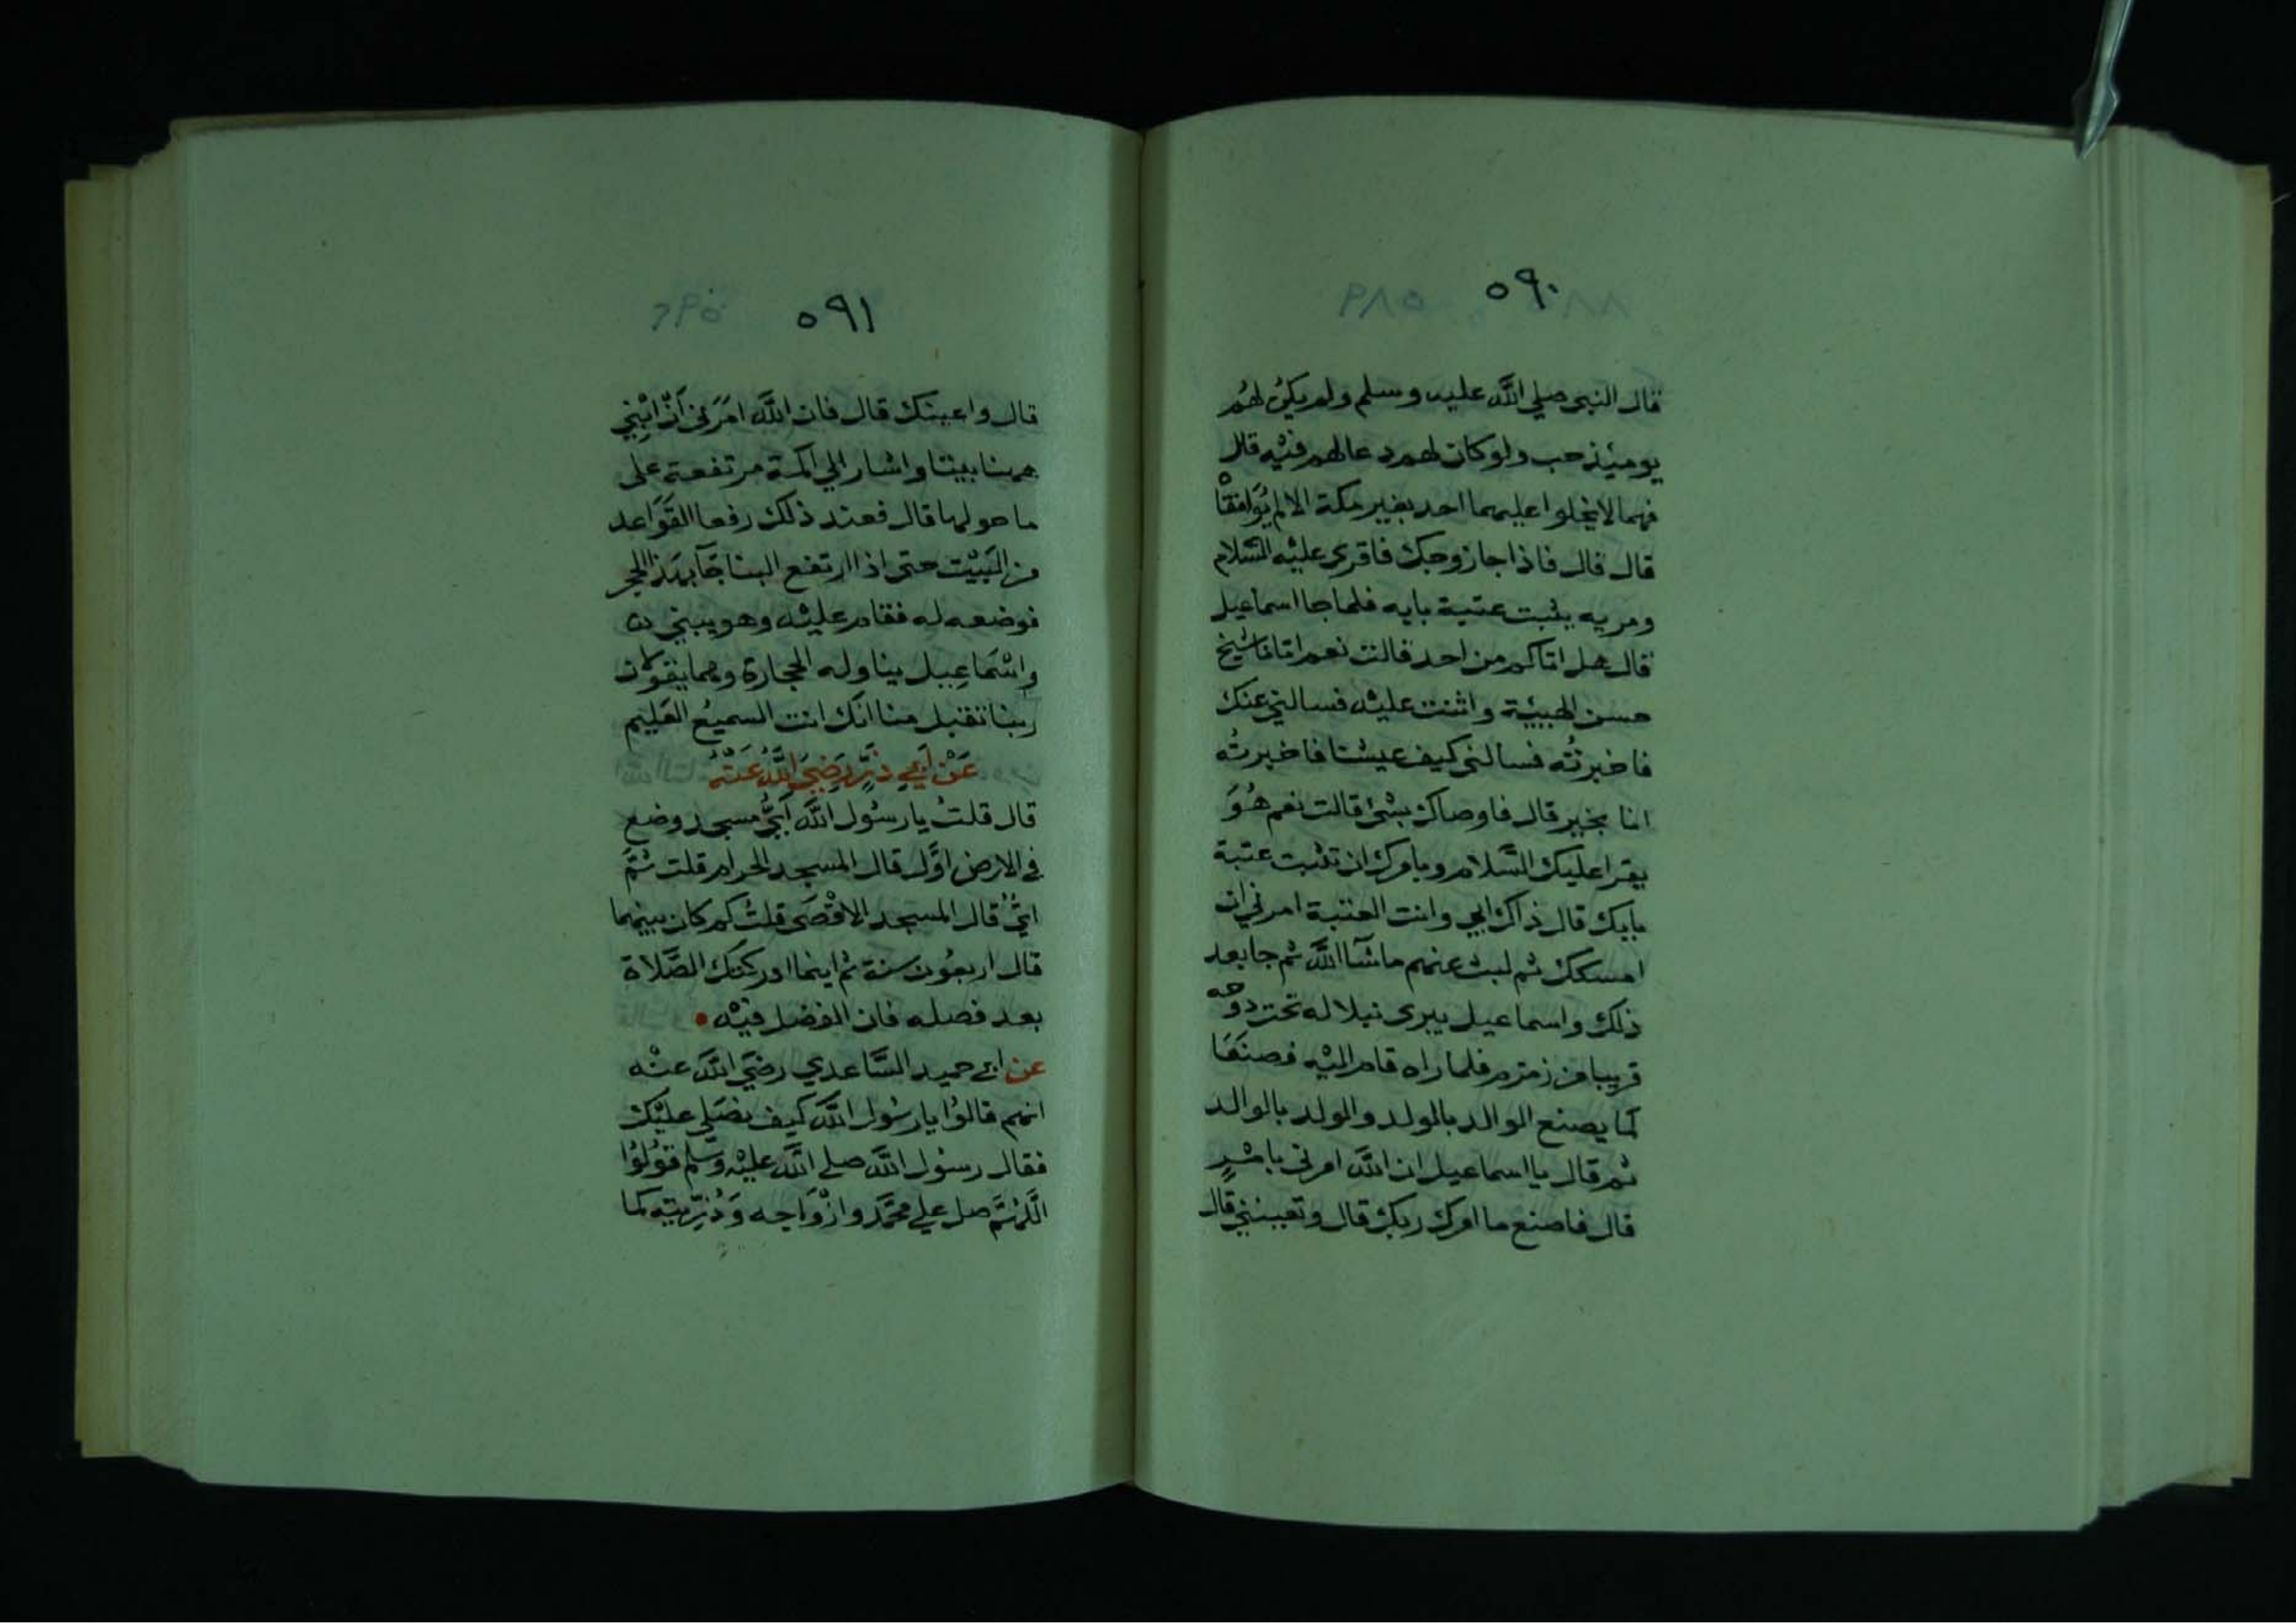 ٥٩٠
قال النبي صلي اللَّه عليه وسلم ولم يكنُ لهُم
يومئذ حب ولو كان لهم دعالهم فيْه قال
فهما لا يخلوا عليهما احد بغير مكة الا لم يُوَافقاْه
قال قال فاذا جا زوجك فاقري عليْه السَّلام
ومريه يثبت عتبة بابه فلما جا اسماعيل
قال هل اتاكم من احد قالت نعم اتانا شيخ
حسن الهيئة واثنت عليْه فسالني عنك
فاخبرتُه فسالني كيف عيشنا فاخبرتُه
اننا بخير قال فاوصاك بشئ قالت نعم هُوَ
يقرا عليك السَّلام ويامرك ان تثبت عتبة
بابك قال ذاك ابي وانت العتبة امرني ان
امسكك ثم لبث عنهم ماشآ اللَّه ثم جا بعد
ذلك واسماعيل يبري نبلا له تحت دوحه
قريبا من زمزم فلما راه قام اليْه فصنعَا
كما يصنع الوالد بالولد والولد بالوالد
ثم قال يا اسماعيل ان اللَّه امرني بامْرٍ
قال فاصنع ما امرك ربك قال وتعينني قال
٥٩١
قال واعينك قال فان اللَّه امَرَني اَنْ ابْنِي
ههنا بيتا واشار الي اكمة مرتفعة على
ما حولها قال فعند ذلك رفعا القَوَاعد
من البَيْت حتى اذا ارتفع البنا جَآ بهَذا الحجر
فوضعه له فقام عليْه وهو يبني
واسْمَاعِيل يناوله الحجارة وهما يقولان
ربنا تقبل منا انَّك انت السميعُ العَليم
عَنْ اَبِي ذَرٍّ رَضِيَ اللَّهُ عَنْهُ
قال قلتُ يا رسُول اللَّه اَيُّ مسجد وضع
في الارض اوَّل قال المسجد الحرام قلت ثمَّ
ايُّ قال المسجد الاقْصَى قلتُ كم كان بينهما
قال اربعُون سنة ثم اينما ادركتك الصَّلاة
بعد فصله فان الفضل فيْه
عن ابي حميد السَّاعدي رضيَ اللَّه عنْه
انهم قالوُا يا رسُول اللَّه كيف نصَلي عليْك
فقال رسُول اللَّه صلى اللَّه عليْه وَسَلم قوُلوُا
اللَّهُمَّ صل علي محَمَّد وازْوَاجه وَذُرّيَّته كما